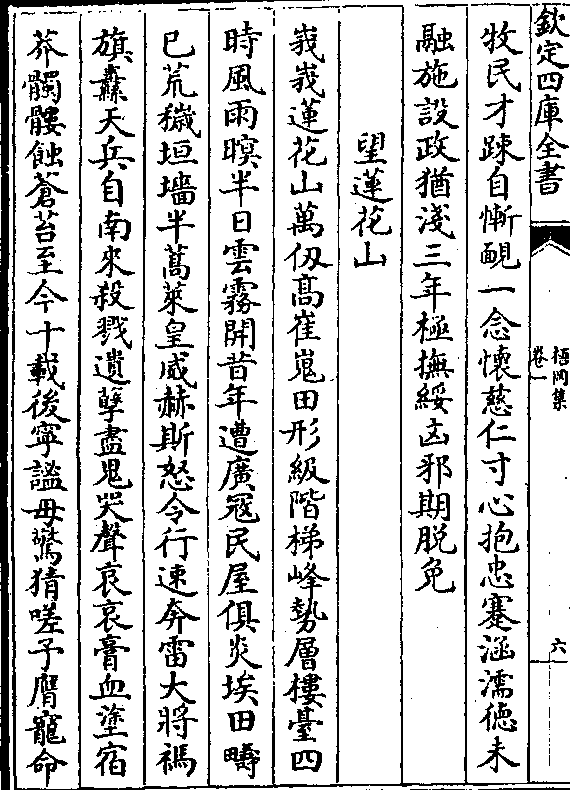 欽定四庫全書
梧岡集
卷一
六
牧民才踈自慚靦一念懐慈仁寸心抱忠蹇涵濡徳未
融施設政猶淺三年極撫綏㐫邪期脱免
望蓮花山
峩峩蓮花山萬仭髙崔嵬田形級階梯峰勢層樓臺四
時風雨暝半日雲霧開昔年遭廣冦民屋俱炎埃田疇
已荒穢垣墻半蒿萊皇威赫斯怒令行速奔雷大將禡
旗纛天兵自南來殺戮遺孽盡鬼哭聲哀哀膏血塗宿
莽髑髏蝕蒼苔至今十載後寧謐毋驚猜嗟予膺寵命